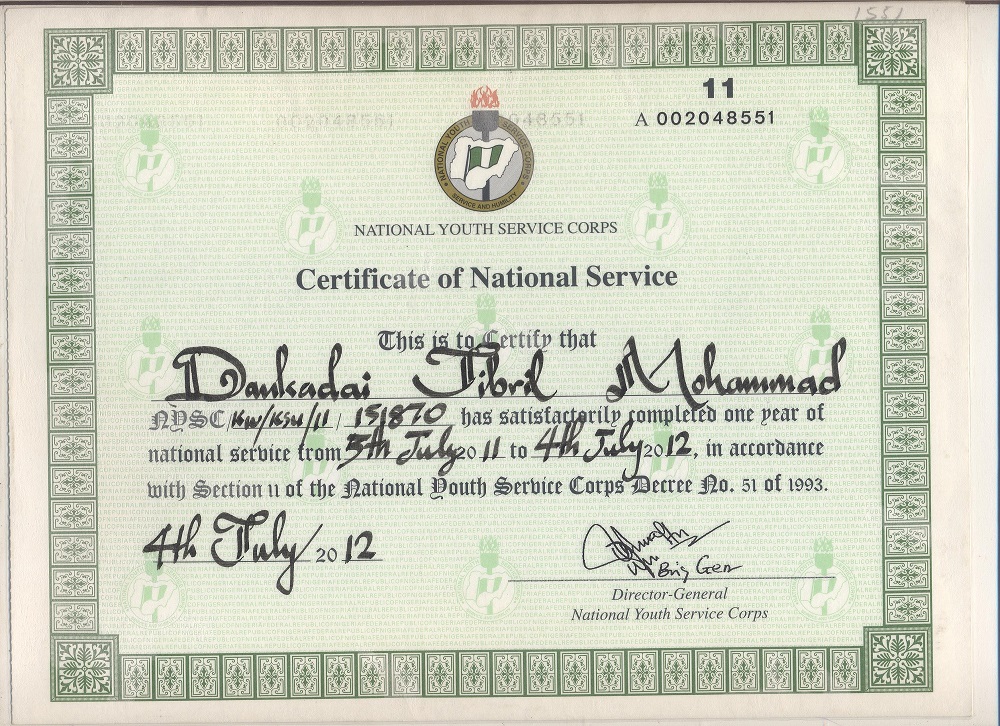 1551
11
A 002048551
NATIONAL YOUTH SERVICE CORPS
SERVICE AND HUMILITY
NATIONAL YOUTH SERVICE CORPS
Certificate of National Service
This is to Certify that
Dankadai Jibril Mohammad
NYSC/KW/KSU/11/151870 has satisfactorily completed one year of
national service from 5th July 2011 to 4th July 2012, in accordance
with Section 11 of the National Youth Service Corps Decree No. 51 of 1993.
4th July 2012
Brig Gen
Director-General
National Youth Service Corps